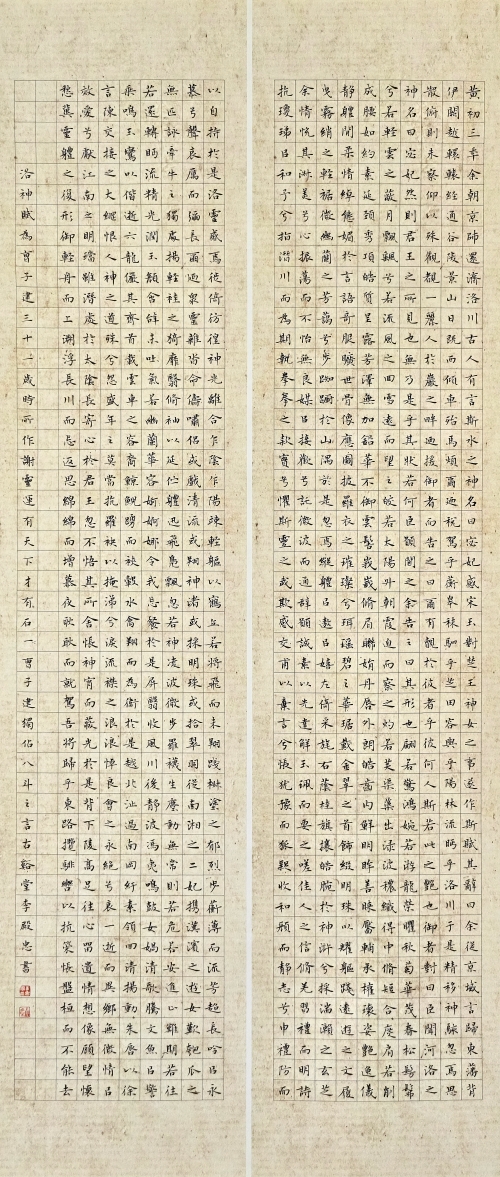 黃初三年余朝京師還濟洛川古人有言斯水之神名曰宓妃感宋玉對楚王神女之事遂作斯賦其辭曰余從京域言歸東藩背
伊闕越轘轅經通谷陵景山日既西傾車殆馬煩爾迺稅駕乎蘅皋秣駟乎芝田容與乎陽林流眄乎洛川于是精移神駭忽焉思
散俯則未察仰以殊觀覩一麗人於巖之畔迺援御者而告之曰爾有覿於彼者乎彼何人斯若此之豔也御者對曰臣聞河洛之
神名曰宓妃然則君王之所見也無乃是乎其狀若何臣願聞之余告之曰其形也翩若驚鴻婉若游龍榮曜秋菊華茂春松髣髴
兮若輕雲之蔽月飄颻兮若流風之回雪遠而望之皎若太陽升朝霞迫而察之灼若芙蕖出淥波穠纖得中脩短合度肩若削
成腰如約素延頸秀項皓質呈露芳澤無加鉛華不御雲髻峩峩脩眉聯娟丹唇外朗皓齒內鮮明眸善睞靨輔承權瓌姿豔逸儀
靜體閒柔情綽態媚於言語奇服曠世骨像應圖披羅衣之璀璨兮珥瑤碧之華琚戴金翠之首飾綴明珠以耀軀踐遠遊之文履
曳霧綃之輕裾微幽蘭之芳藹兮步踟躕於山隅於是忽焉縱體㠯遨㠯嬉左倚采旄右蔭桂旗攘皓腕於神滸兮採湍瀨之玄芝
余情悅其淑美兮心振蕩而不怡無良媒㠯接歡兮託微波而通辭願誠素㠯先達兮解玉珮而要之嗟佳人之信脩羌習禮而明詩
抗瓊珶㠯和予兮指潛川而為期執拳拳之款實兮懼斯靈之或欺感交甫㠯棄言兮悵猶豫而狐疑收和顏而靜志兮申禮防而
以自持於是洛靈感焉徙倚彷徨神光離合乍陰乍陽竦輕軀以鶴立若將飛而未翔踐椒塗之郁烈步蘅薄而流芳超長吟㠯永
慕兮聲哀厲而彌長爾迺衆靈雜沓命儔嘯侶或戲清流或翔神渚或採明珠或拾翠羽從南湘之二妃攜漢濱之遊女歎匏瓜之
無匹詠牽牛之獨處揚輕袿之猗靡翳脩袖以延佇體迅飛鳧飄忽若神凌波微步羅襪生塵動無常則若危若安進止難期若往
若還轉眄流精光潤玉顏含辭未吐氣若幽蘭華容婀娜令我忘餐於是屏翳收風川後靜波馮夷鳴鼓女媧清歌騰文魚㠯警
乘鳴玉鸞以偕逝六龍儼其齊首載雲車之容裔鯨鯢踊而夾轂水禽翔而為衛於是越北沚過南岡紆素領回清揚動朱唇以徐
言陳交接之大綱恨人神之道殊兮怨盛年之莫當抗羅袂以掩涕兮淚流襟之浪浪悼良會之永絕兮哀一逝而異鄉無微情㠯
效愛兮獻江南之明璫雖潛處於太陰長寄心於君王忽不悟其所舍悵神宵而蔽光於是背下陵高足往心留遺情想像顧望懷
愁冀靈體之復形御輕舟而上溯浮長川而忘返思綿綿而增慕夜耿耿而就駕吾將歸乎東路攬騑轡以抗策悵盤桓而不能去
洛神賦為曹子建三十一歲時所作謝靈運有天下才有石一曹子建獨佔八斗之言古谿堂李殿忠書